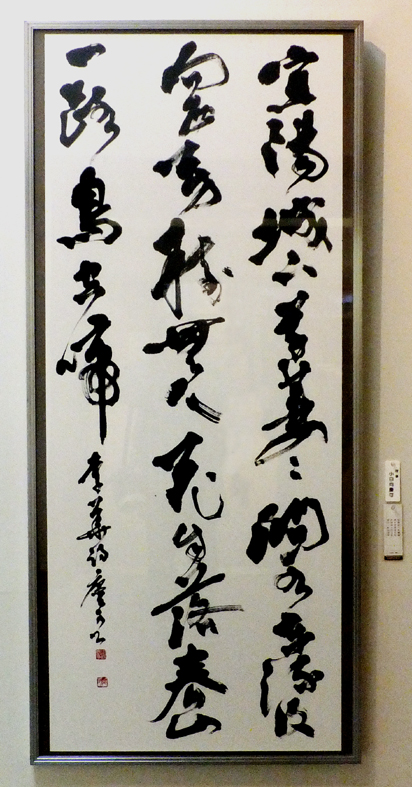 宜陽城下草萋々澗水東流復
向西芳樹無人花自落春山
一路鳥空啼 李華詩